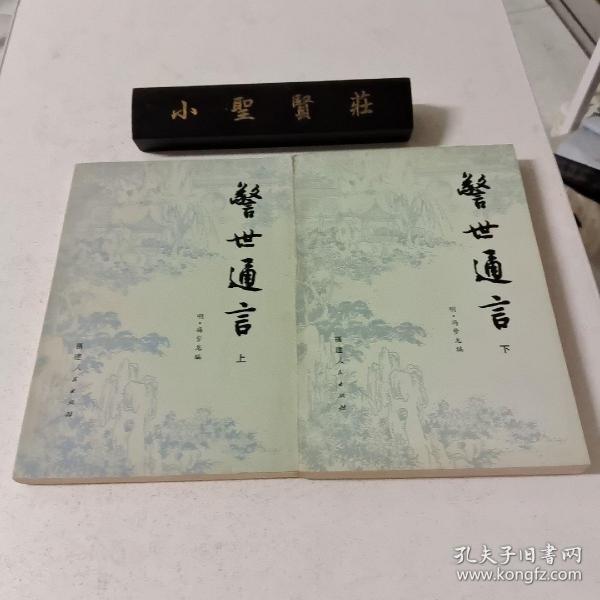 小聖賢莊
警世通言
上
明·馮夢龙編
福建人民出版社
警世通言
下
明·馮夢龙編
福建人民出版社
孔夫子旧書网
www.kongfz.com